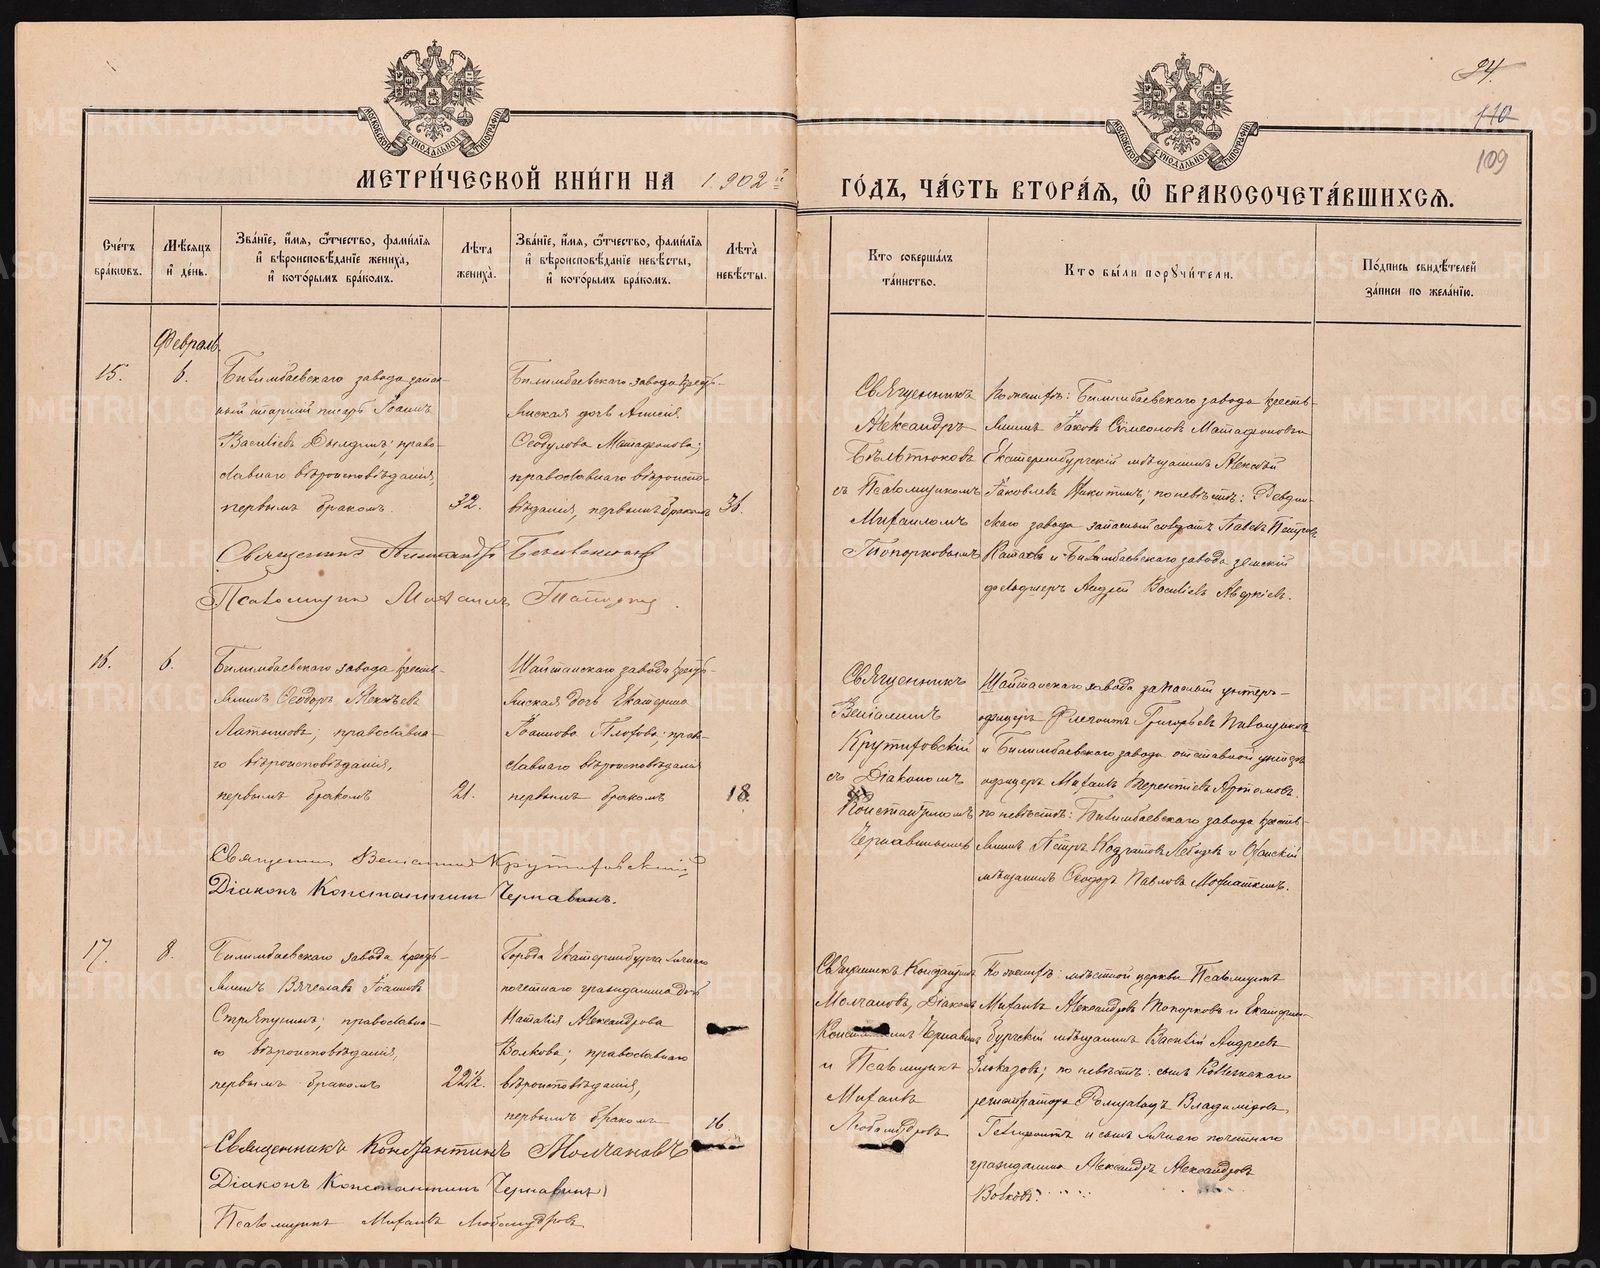 МОСКОВСКОЙ СѴНОДАЛЬНОЙ ТИПОГРАФІИ
МОСКОВСКОЙ СѴНОДАЛЬНОЙ ТИПОГРАФІИ
24.
110
109
МЕТРИ́ЧЕСКОЙ КНИ́ГИ НА 1902 й
ГО́ДЪ, ЧА́СТЬ ВТОРА́Ѧ, Ѽ БРАКОСОЧЕТА́ВШИХСѦ.
Сче́тъ бра́кѡвъ.
Мѣ́сѧцъ и҆ де́нь.
Зва́нїе, и҆́мѧ, ѻ҆́тчество, фами́лїѧ и҆ вѣроисповѣ́данїе жениха̀, и҆ кото́рымъ бра́комъ.
Лѣ́та жениха̀.
Зва́нїе, и҆́мѧ, ѻ҆́тчество, фами́лїѧ и҆ вѣроисповѣ́данїе невѣ́сты, и҆ кото́рымъ бра́комъ.
Лѣ́та невѣ́сты.
Кто совершáлъ та́инство.
Кто бы́ли порꙋчи́тели.
По́дпись свидѣ́телей за́писи по жела́нїю.
Февраль.
15.
6.
Билимбаевскаго завода запас-
ный старшій писарь Іоаннъ
Васильевъ Дылдинъ; право-
славнаго вѣроисповѣданія,
первымъ бракомъ.
32.
Билимбаевскаго завода кресть-
янская дочь Анисія
Ѳеодулова Матафонова;
православнаго вѣроиспо-
вѣданія, первымъ бракомъ
31.
Священникъ
Александръ
Бѣльтюковъ
съ Псаломщикомъ
Михаиломъ
Топорковымъ
По женихѣ: Билимбаевскаго завода кресть-
янинъ Іаковъ Симеоновъ Матафоновъ и
Екатеринбургскій мѣщанинъ Алексѣй
Іаковлевъ Никитинъ; по невѣстѣ: Ревдин-
скаго завода запасный солдатъ Павелъ Петровъ
и Билимбаевскаго завода земскій
фельдшеръ Андрей Васильевъ Аверкіевъ.
Священникъ Александръ Бѣльтюковъ
Псаломщикъ Михаилъ
16.
6.
Билимбаевскаго завода кресть-
янинъ Ѳеодоръ Алексѣевъ
Латышовъ; православна-
го вѣроисповѣданія,
первымъ бракомъ
21.
Шайтанскаго завода кресть-
янская дочь Екатерина
Іоаннова Плохова; прав-
славнаго вѣроисповѣданія
первымъ бракомъ
18.
Священникъ
Веніаминъ
Крутиховскій
съ Діакономъ
Константиномъ
Чернавинымъ
Шайтанскаго завода запасный унтеръ-
офицеръ Флегонтъ Григорьевъ Пивоваровъ
и Билимбаевскаго завода отставной унтеръ
офицеръ Михаилъ Терентіевъ Артомовъ.
по невѣстѣ: Билимбаевскаго завода кресть-
янинъ Петръ Лебедевъ и Осинскій
мѣщанинъ Ѳеодоръ Павловъ
Священникъ Веніаминъ Крутиховскій
Діаконъ Константинъ Чернавинъ.
17.
8.
Билимбаевскаго завода кресть-
янинъ Вячеславъ Іоанновъ
Стряпунинъ; православна-
го вѣроисповѣданія,
первымъ бракомъ
22½.
Города Екатеринбурга личнаго
почетнаго гражданина дочь
Наталія Александрова
Волкова; православнаго
вѣроисповѣданія,
первымъ бракомъ
16.
Священникъ Константинъ
Молчановъ, Діаконъ
Константинъ Чернавинъ
и Псаломщикъ
Михаилъ
Любомудровъ
По женихѣ: мѣстной церкви Псаломщикъ
Михаилъ Александровъ Топорковъ и Екатерин-
бургскій мѣщанинъ Василій Андреевъ
Злоказовъ; по невѣстѣ: сынъ Коллежскаго
регистратора Ромуальдъ Владиміровъ
и сынъ личнаго почетнаго
гражданина Александръ Александровъ
Волковъ.
Священникъ Константинъ Молчановъ
Діаконъ Константинъ Чернавинъ
Псаломщикъ Михаилъ Любомудровъ